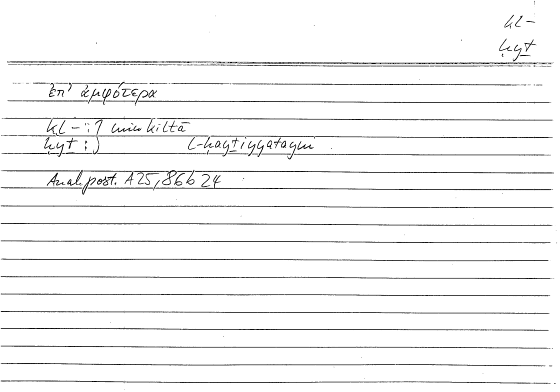 kl-
ḥyṯ
ἐπ' ἀμφότερα
kl- : } min kiltā
ḥyṯ : } l-ḥayṯiyyatayni
Anal. post. A25, 86b24